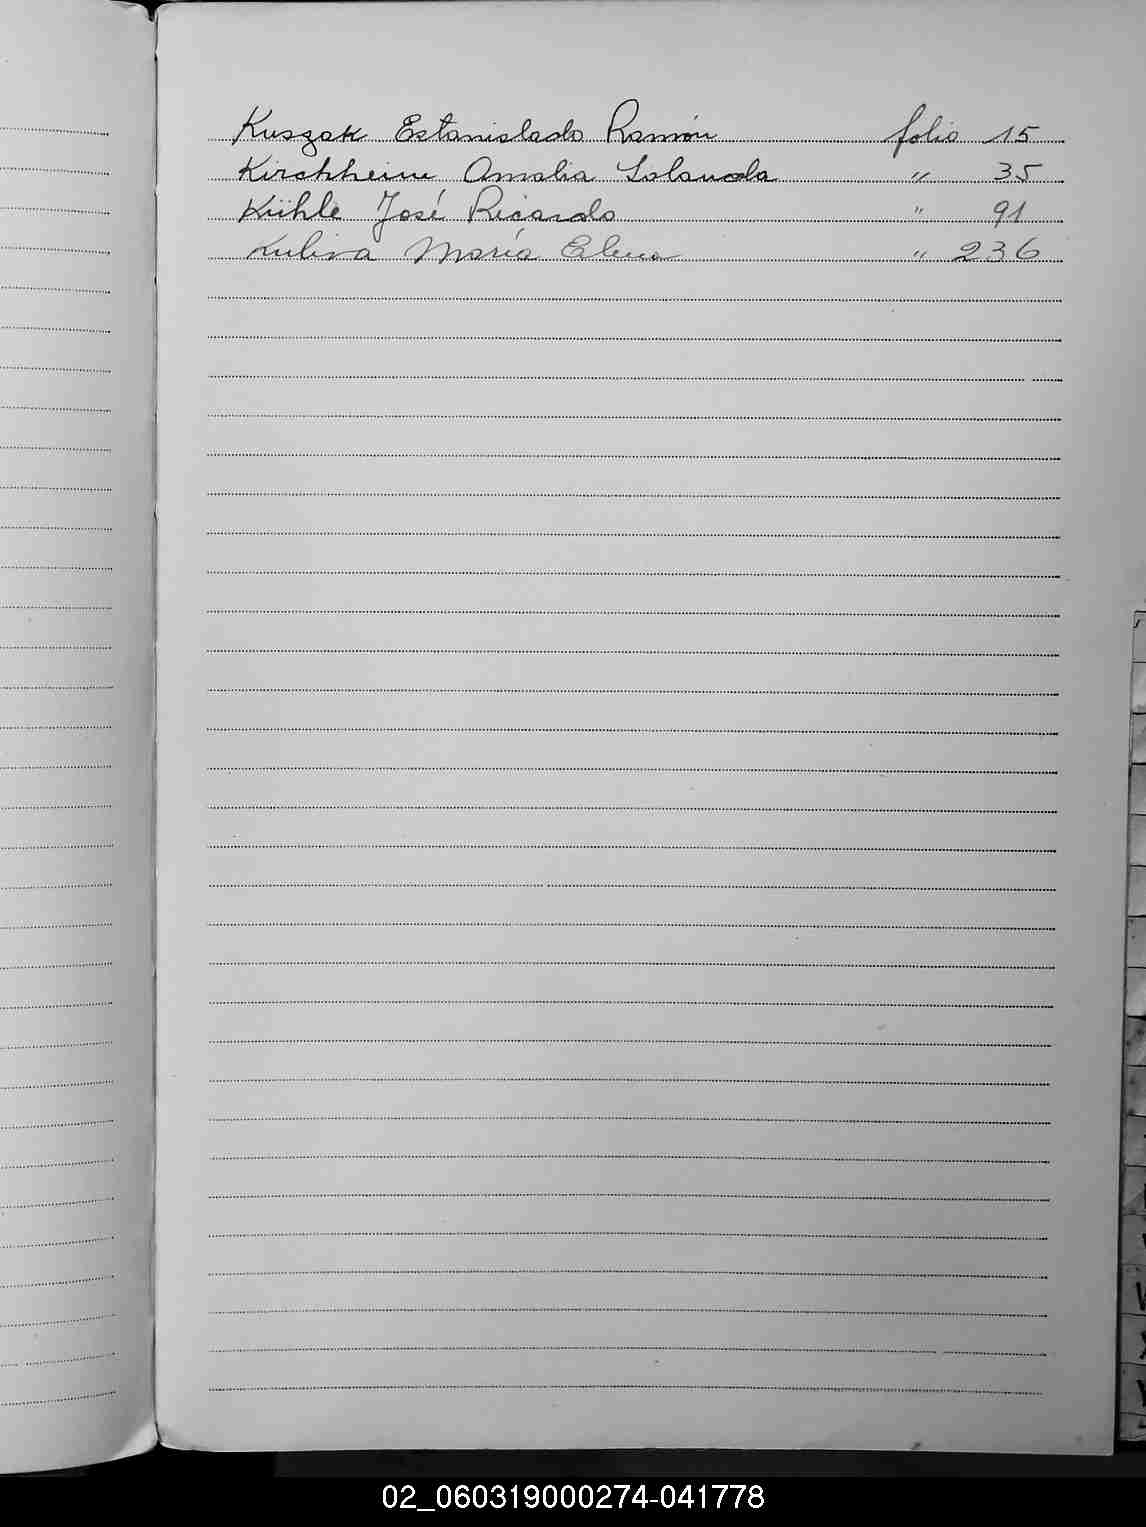 Kuszak Estanislado Ramón folio 15
Kirchheim Amalia Iolanda " 35
Kühle José Ricardo " 91
Kuliva María Elena " 236
02_060319000274-041778